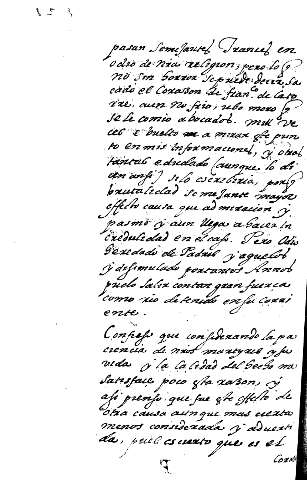 pasan Semejantes Trances en
odio de nra religion; pero lo q
no sin horror se puede decir, sa
cado el Corazon de fran.co de la to
rre, aun no frio, ubo moro q
se le comio a bocados. mill ve
ces e buelto a mirar este pun
to en mis informaciones, y otras
tantas e dudado (aunque lo di
cen assi) si lo escreberia, porq
brutalidad semejante mayor
effeto causa que admiracion, y
pasmo, y aun llega a hacer in
credulidad en el caso. Pero odio
heredado de Padres y aguelos
y disimulado por tantos Annos
pudo salir con tan gran fuerca
como rio detenido en su corri
ente.
Confieso que considerando la pa
ciencia de nros martyres y su
vida y la calidad del hecho me
satisface poco esta razon, y
asi pienso que fue este effeto de
otra causa aunque mas cierta
menos considerada y adverti
da, pues es cierto que es el
Coraz